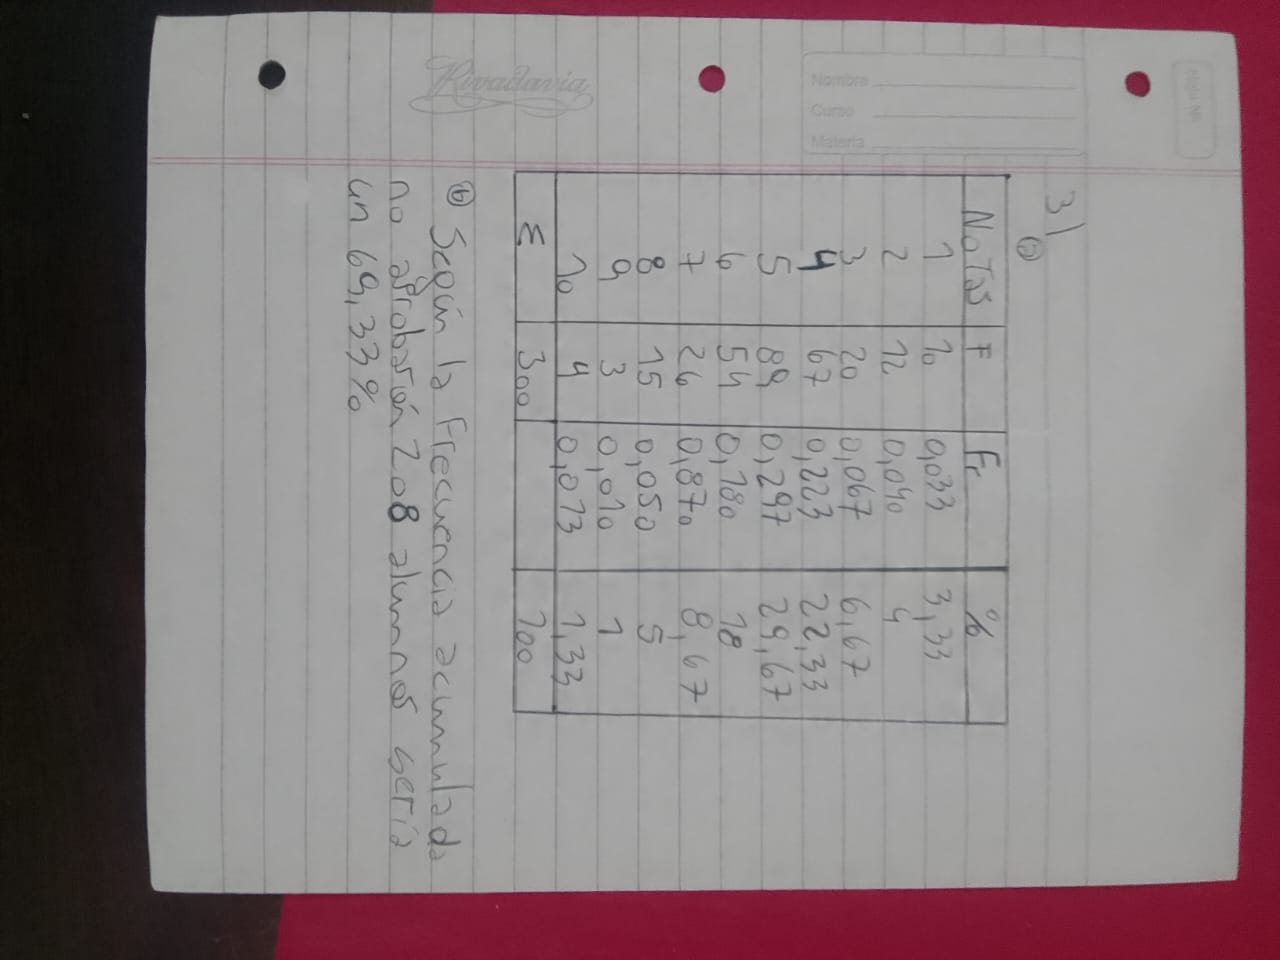 Nota Nº
Nombre
Curso
Materia
Rivadavia
3)
Notas F Fr %
1 10 0,033 3,33
2 12 0,040 4
3 20 0,067 6,67
4 67 0,223 22,33
5 89 0,297 29,67
6 54 0,180 18
7 26 0,870 8,67
8 15 0,050 5
9 3 0,010 1
10 4 0,013 1,33
Σ 300 100
b Según la Frecuencia acumulada
no aprobarían 208 alumnos sería
un 69,33%